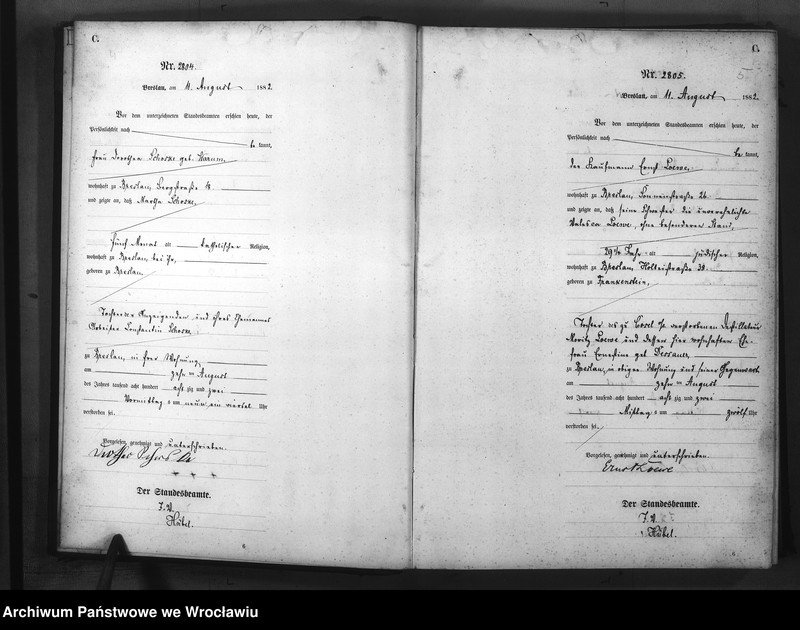 C.
Nr. 2804.
Breslau, am 11. August 1882.
Vor dem unterzeichneten Standesbeamten erschien heute, der
Persönlichkeit nach
be kannt,
Frau Dorothea geb.
wohnhaft zu Breslau, Bergstraße
und zeigte an, daß Martha
fünf Monat alt katholischer Religion,
wohnhaft zu Breslau bei ihr,
geboren zu Breslau
Tochter der Anzeigenden und ihres Ehemannes
Arbeiter Constantin
zu Breslau, in ihrer Wohnung,
am zehn ten August
des Jahres tausend acht hundert acht zig und zwei
Vormittag s um neun ein viertel Uhr
verstorben sei.
Vorgelesen, genehmigt und unterschrieben.
Der Standesbeamte.
J. V.
Hübel.
C.
5
Nr. 2805.
Breslau, am 11. August 1882.
Vor dem unterzeichneten Standesbeamten erschien heute, der
Persönlichkeit nach
be kannt,
der Kaufmann Ernst Loewe,
wohnhaft zu Breslau, Sonnenstraße 26
und zeigte an, daß seine Schwester die unverehelichte
Valesca Loewe, ohne besonderen Stand,
29 1/4 Jahr alt jüdischer Religion,
wohnhaft zu Breslau, Holteistraße 39
geboren zu Frankenstein,
Tochter des zu Cosel verstorbenen Destillateur
Moritz Loewe und dessen hier wohnhaften Ehe-
frau Ernestine geb. Dessauer,
zu Breslau, in obiger Wohnung und seiner Gegenwart
am zehn ten August
des Jahres tausend acht hundert acht zig und zwei
Mittag s um zwölf Uhr
verstorben sei.
Vorgelesen, genehmigt und unterschrieben.
Ernst Loewe
Der Standesbeamte.
J. V.
Hübel.
Archiwum Państwowe we Wrocławiu